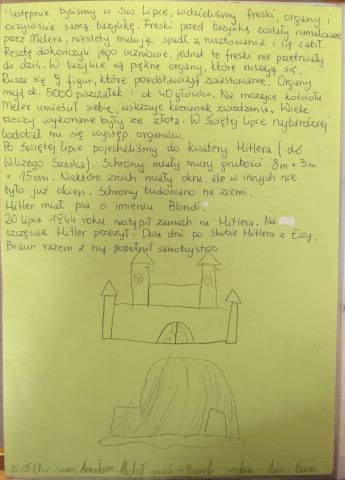 Następnie byliśmy w Św Lipce, widzieliśmy freski, organy i
oczywiście samą bazylikę. Freski przed bazyliką zostały namalowane
przez Melera, niestety malując spadł z rusztowania i się zabił.
Resztę dokończyli jego uczniowie, jednak te freski nie przetrwały
do dziś. W bazylice są piękne organy, które ruszają się.
Rusza się 9 figur, które przedstawiają zwiastowanie. Organy
mają ok. 5000 piszczałek i ok 40 głosów. Na mozaice kościoła
Meler umieścił siebie, wskazuje kierunek zwiedzania. Wiele
rzeczy wykonane były ze złota. W Świętej Lipce najbardziej
podobał mi się występ organów.
Po Świętej Lipce pojechaliśmy do kwatery Hitlera (do
Wilczego Szańca). Schrony miały mury grubości 8m × 3m
× 15m. Niektóre z nich miały okna, ale w innych nie
było już okien. Schrony budowano na ziemi.
Hitler miał psa o imieniu Blondi
20 lipca 1944 roku nastąpił zamach na Hitlera. Na
szczęście Hitler przeżył. Dwa dni po ślubie Hitlera z Ewą,
Braun razem z nią popełnił samobójstwo